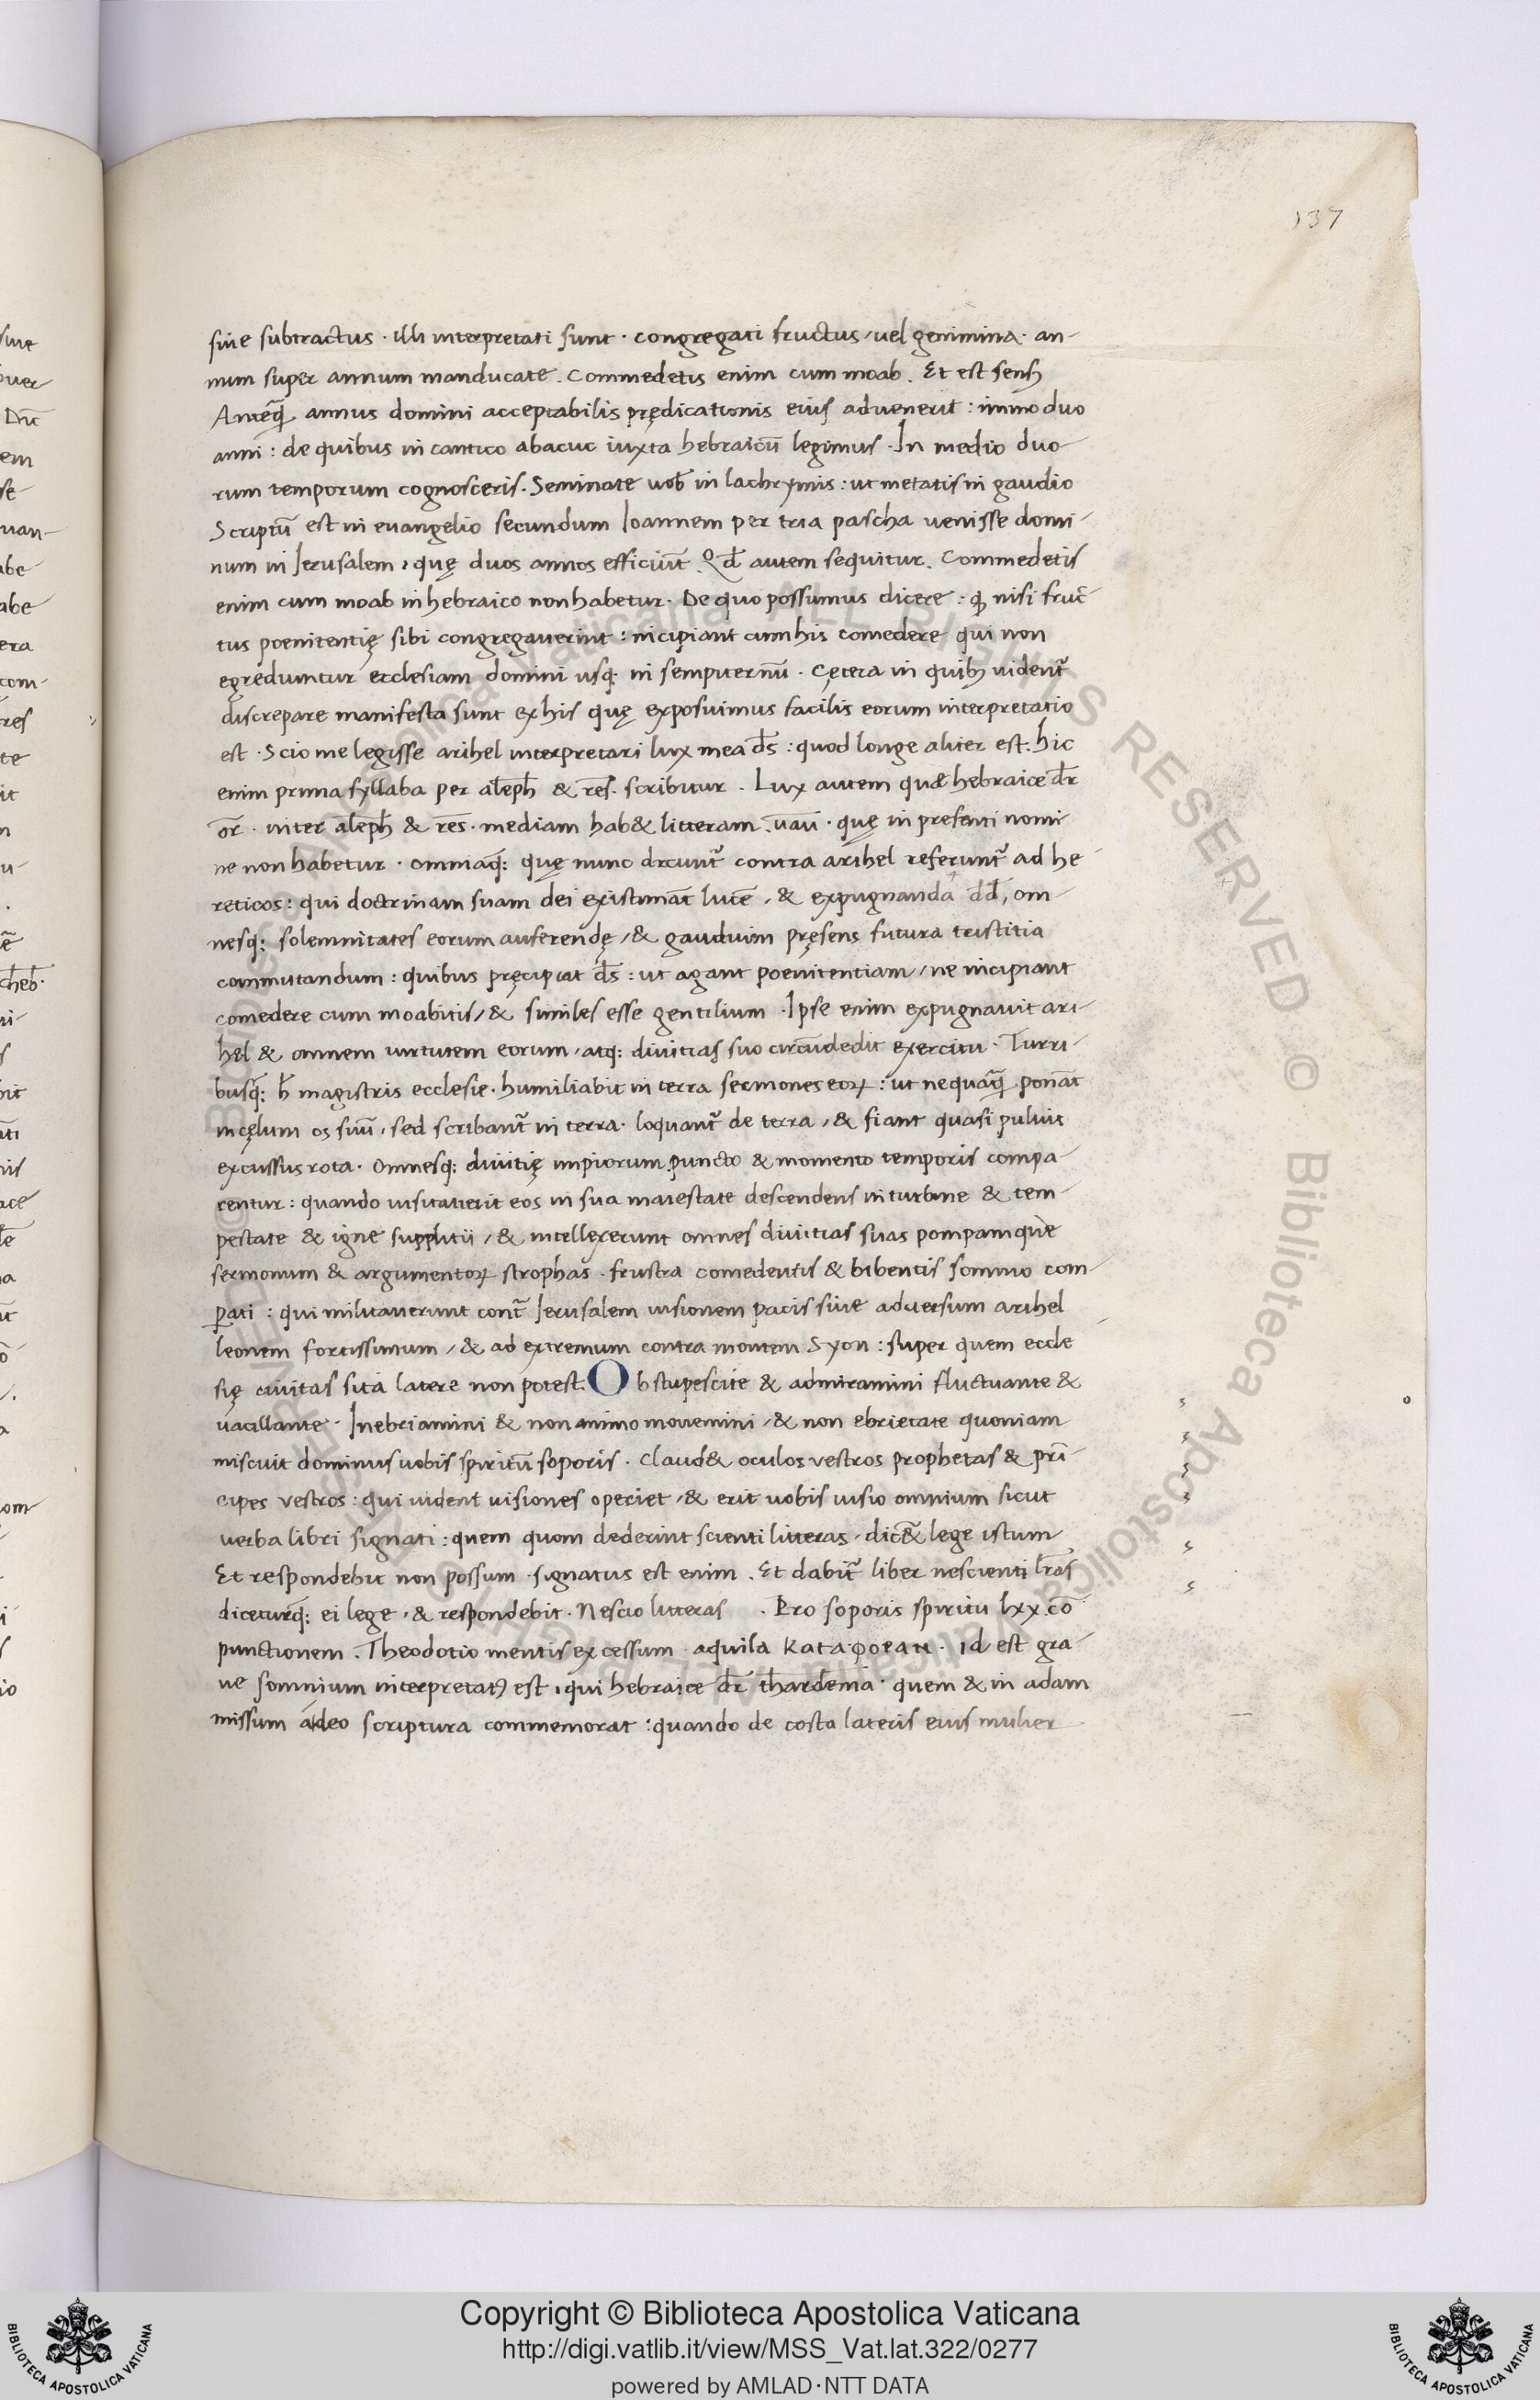 137
siue subtractus · illi interpretati sunt · congregati fructus / uel genimina · an-
num super annum manducate . Commedetis enim cum moab . Et est senſꝫ
Anteq̃ annus domini acceptabilis prędicationis eius aduenerit : immo duo
anni : de quibus in cantico abacuc iuxta hebraicũ legimus · In medio duo-
rum temporum cognosceris . Seminate uob̄ in lachrymis : ut metatis in gaudio
Scriptũ est in euangelio secundum Ioannem per tria pascha uenisse domi-
num in Jerusalem , quę duos annos efficiũt . Qd̄ autem sequitur . Commedetis
enim cum moab in hebraico non habetur . De quo possumus dicere : ꝙ nisi fruc-
tus poenitentię sibi congregauerint : incipiant cum his comedere qui non
egrediuntur ecclesiam domini usq; in sempiternũ . Cętera in quibꝫ uident᷑
discrepare manifesta sunt ex his quę exposuimus facilis eorum interpretatio
est . Scio me legisse arihel interpretari lux mea d̄s : quod longe aliter est . hic
enim prima syllaba per aleph̄ & res̄ . scribitur . Lux autem quæ hebraice dr̄
or̄ . inter aleph̄ & res̄ . mediam hab& litteram . uau̅ . quę in presenti nomi-
ne non habetur . omniaq; quę nunc dicunt᷑ contra arihel referunt᷑ ad he-
reticos : qui doctrinam suam dei existimãt lucẽ , & expugnanda dd̄ , om-
nesq; solemnitates eorum auferendę , & gaudium pręsens futura tristitia
commutandum : quibus pręcipiat d̄s : ut agant poenitentiam / ne incipiant
comedere cum moabitis , & similes esse gentilium . Ipse enim expugnauit ari-
hel & omnem uirtutem eorum , atq; diuitias suo circũdedit exercitu . Turri-
busq; h̄ magistris ecclesie . humiliabit in terra sermones eoꝝ : ut nequãq̃ ponãt
in cęlum os suũ , sed scribant᷑ in terra . loquant᷑ de terra , & fiant quasi puluis
excussus rota . Omnesq; diuitię impiorum puncto & momento temporis compa-
rentur : quando uisitauerit eos in sua maiestate descendens in turbine & tem-
pestate & igne supplitii , & intellexerunt omnes diuitias suas pompamque
sermonum & argumentoꝝ strophas . frustra comedentis & bibentis somnio com-
pati : qui militauerunt cont᷑ Jerusalem uisionem pacis siue aduersum arihel
leonem fortissimum , & ad extremum contra montem Syon : super quem eccle
się ciuitas sita latere non potest . Obstupescite & admiramini fluctuante &
uacillante . Inebriamini & non animo mouemini , & non ebrietate quoniam
miscuit dominus uobis spiritũ soporis . Claud& oculos vestros prophetas & pri̅
cipes vestros : qui uident uisiones operiet , & erit uobis uisio omnium sicut
verba libri signati : quem quom dederint scienti litteras , dic&̃ lege istum
Et respondebit non possum . signatus est enim . Et dabit᷑ liber nescienti lr̃as
diceturq; ei lege , & respondebit . Nescio litteras . Pro soporis spiritu lxx cõ
punctionem . Theodotio mentis excessum . aquila καταφοραν . id est gra-
ue somnium interpretatꝰ est , qui hebraice dr̄ thardema . quem & in adam
missum a deo scriptura commemorat : quando de costa lateris eius mulier
Copyright © Biblioteca Apostolica Vaticana
http://digi.vatlib.it/view/MSS_Vat.lat.322/0277
powered by AMLAD·NTT DATA